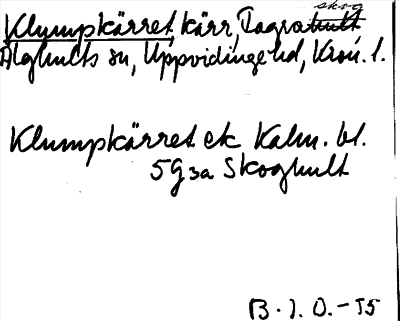 skog
Klumpkärret, kärr, Dagrahult
Älghults sn, Uppvidinge hd, Kron. l.
Klumpkärret ek Kalm. bl.
5G3a Skoghult
B. J. O. - 55